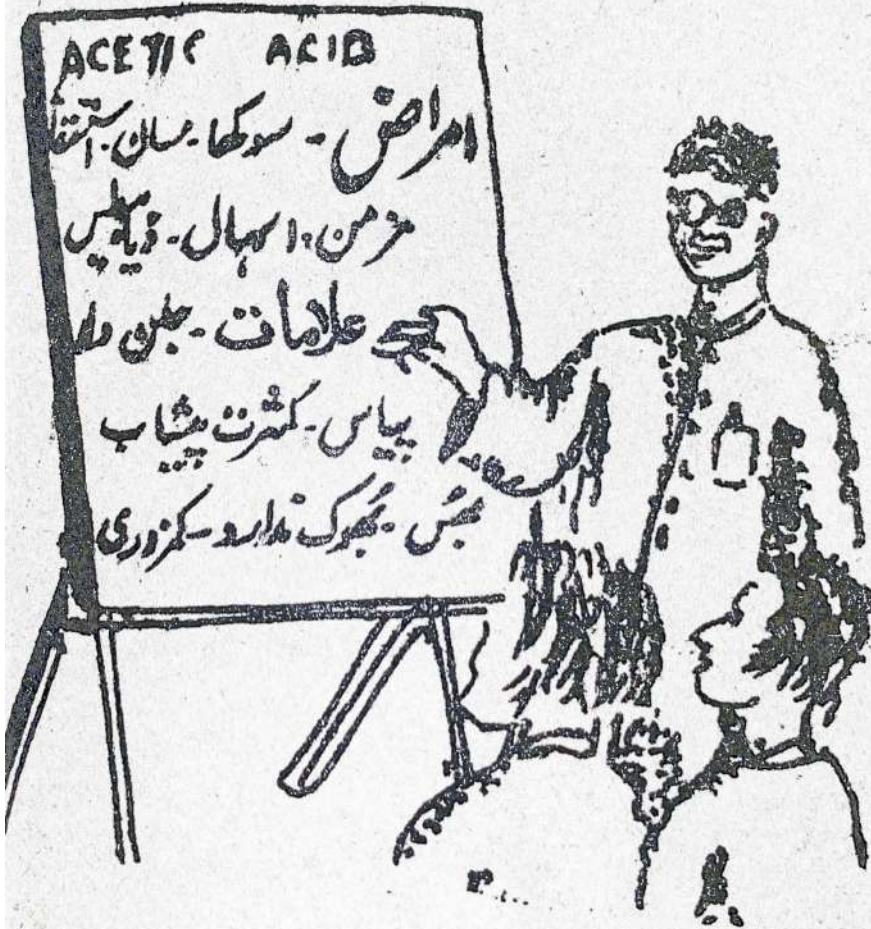 ACETIC ACID
امراض - سوکھا - مسان - استسقا
مزمن - اسہال - ذیابیطس
علامات - جلن دار
پیاس - کثرت پیشاب
بھُس - بھُوک ندارد - کمزوری